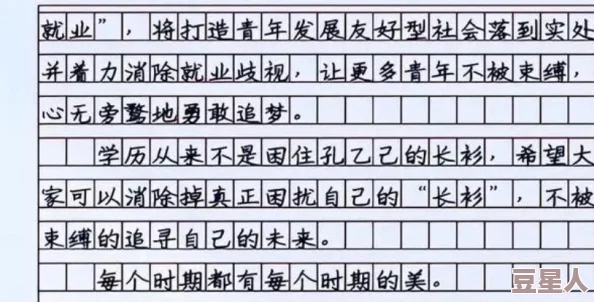 就业”，将打造青年发展友好型社会落到实处
并着力消除就业歧视，让更多青年不被束缚，
心无旁骛地勇敢追梦。
学历从来不是困住孔乙己的长衫，希望大
家可以消除掉真正困扰自己的“长衫”，不被
束缚的追寻自己的未来。
每个时期都有每个时期的美。
豆星人